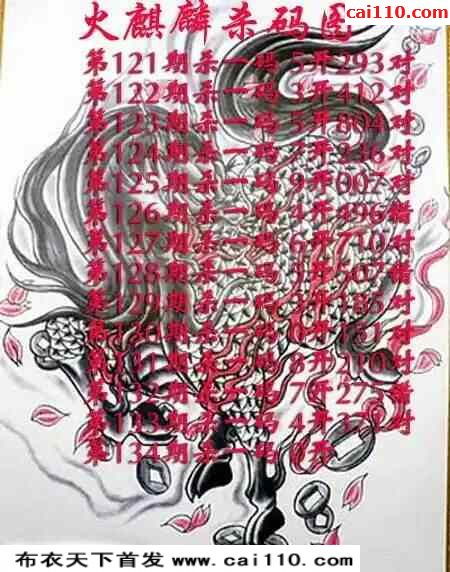 cai110.com
火麒麟杀码图
第121期杀一码 5开293对
第122期杀一码 3开412对
第123期杀一码 5开804对
第124期杀一码 开236对
第125期杀一码 9开007对
第126期杀一码 4开496错
第127期杀一码 6开710对
第128期杀一码 开507错
第129期杀一码 开185对
第130期杀一码 开 对
第131期杀一码 8开210对
第132期杀一码 7开 错
第133期杀一码 4开 对
第134期杀一码 开
布衣天下首发 www.cai110.com